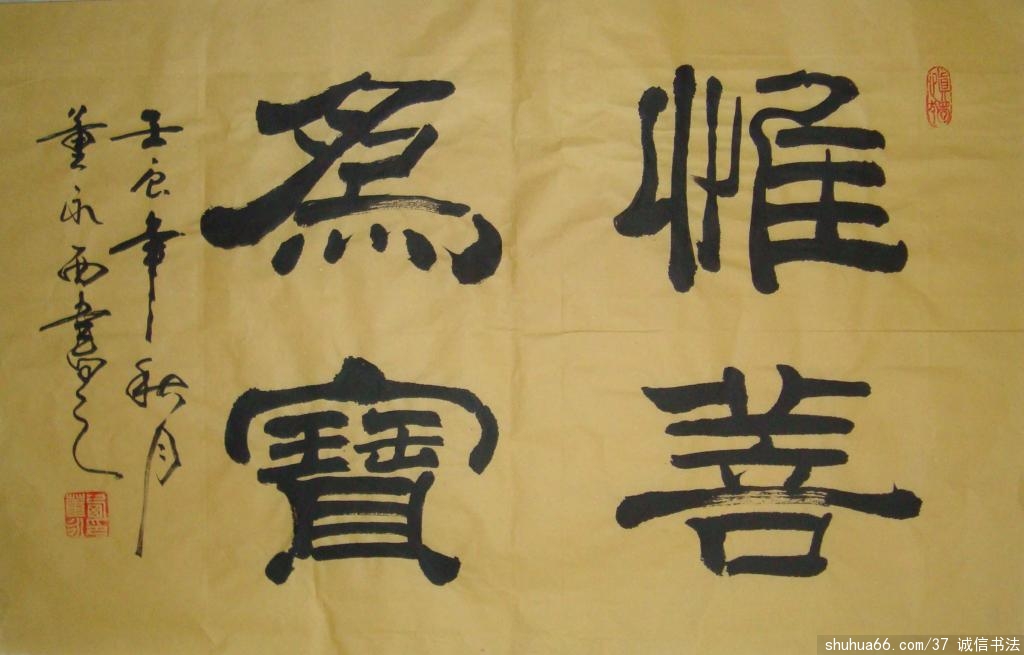 惟善
為寶
壬辰年秋月
董永西書之
shuhua66.com/37 诚信书法